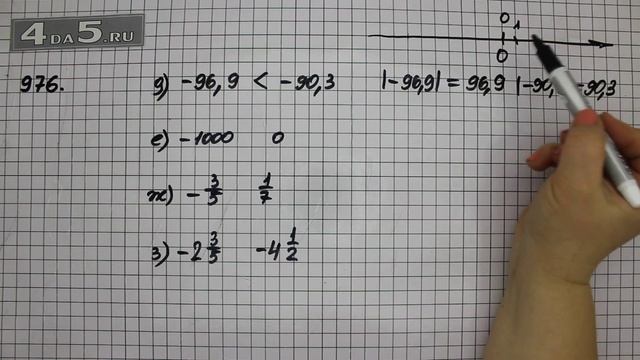 4DA5.RU
0 1
0
976. д) -96,9 < -90,3 |-96,9| = 96,9 |-90, 90,3
е) -1000 0
ж) - 3/5 1/7
з) -2 3/5 -4 1/2